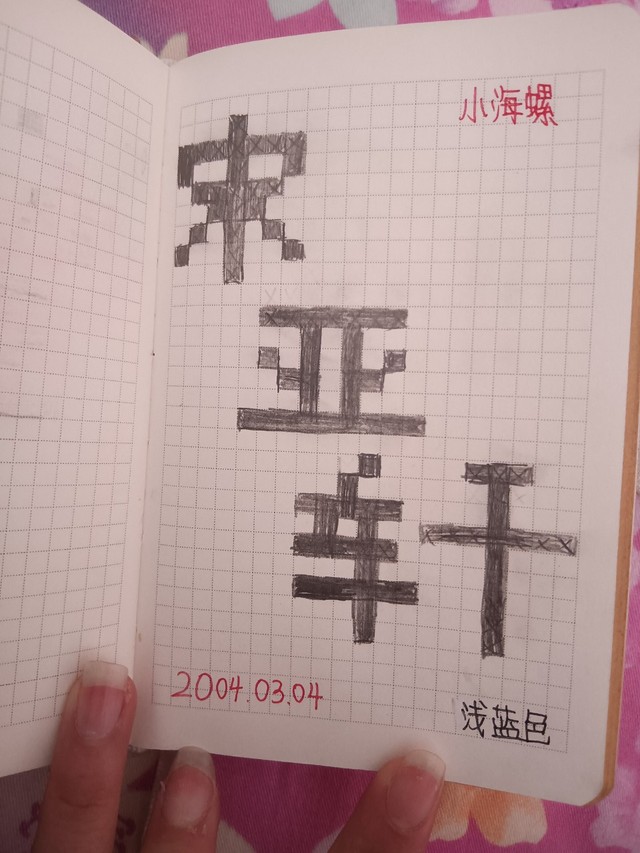 小海螺
宋
亚
轩
2004.03.04
浅蓝色